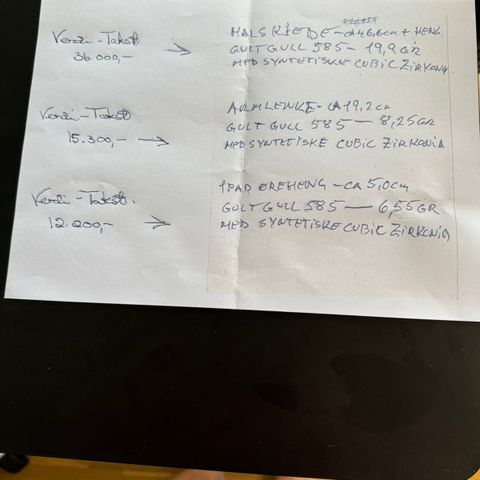 Verdi-Takst
36.000,-
HALSKJEDE - ca 46,6cm + HENG.
GULT GULL 585 - 19,9 GR
MED SYNTETISKE CUBIC ZIRKONIA
Verdi-Takst
15.300,-
ARMLENKE - CA 19,2 cm
GULT GULL 585 - 8,25 GR
MED SYNTETISKE CUBIC ZIRKONIA
Verdi-Takst.
12.200,-
1 PAR ØREHENG - CA 5,0cm
GULT GULL 585 - 6,55 GR
MED SYNTETISKE CUBIC ZIRKONIA